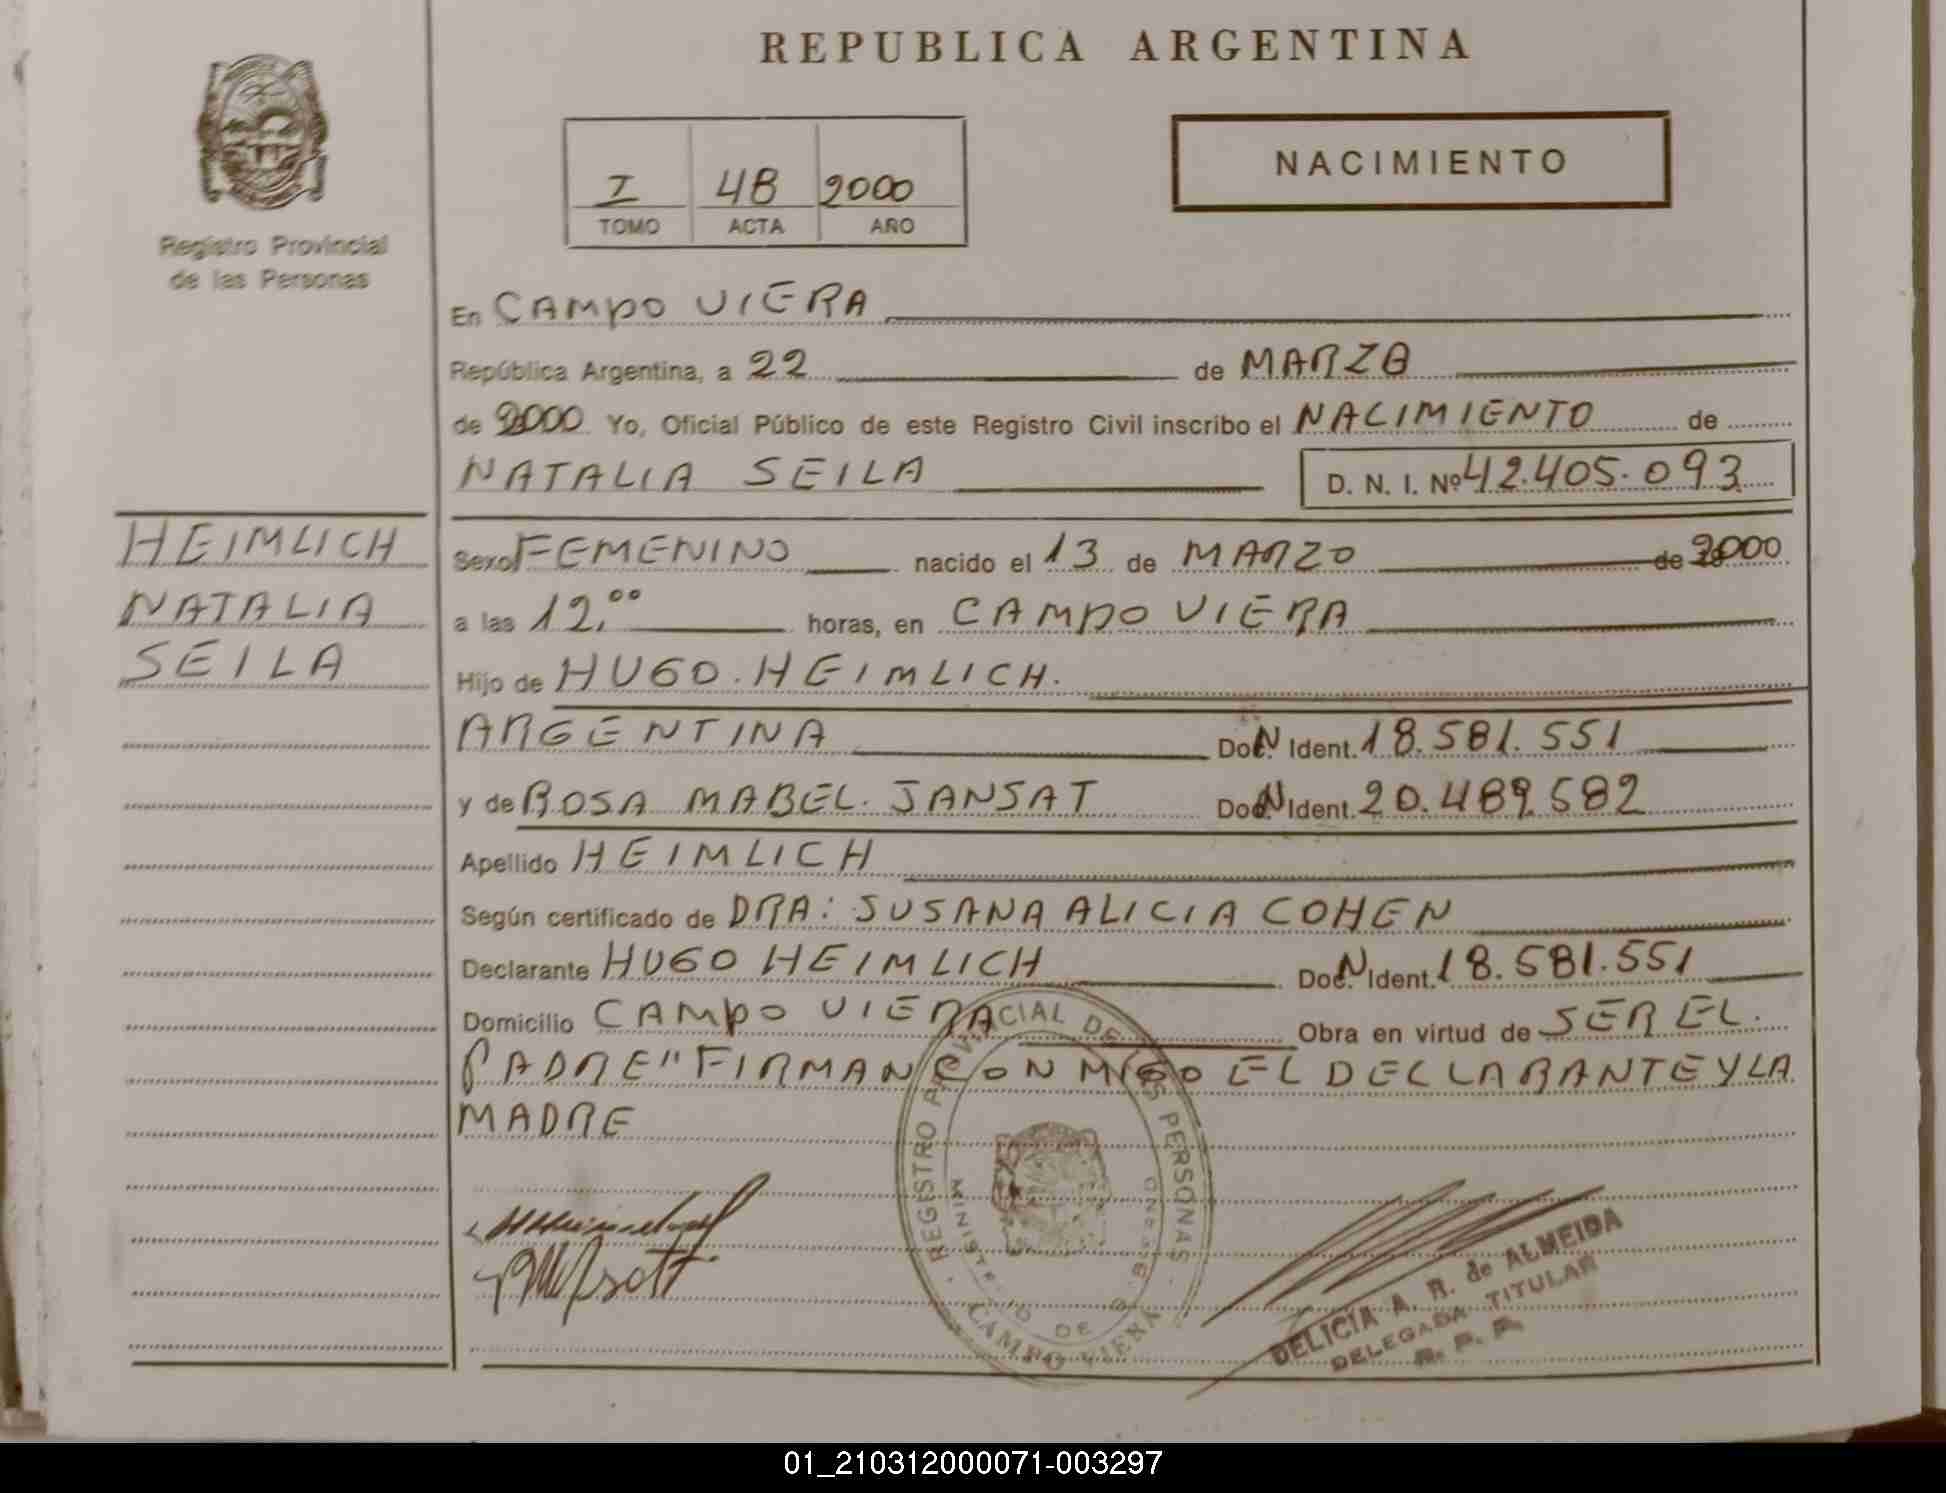 REPUBLICA ARGENTINA
NACIMIENTO
I 48 2000
TOMO ACTA AÑO
Registro Provincial
de las Personas
En CAMPO VIERA
República Argentina, a 22 de MARZO
de 2000 Yo, Oficial Público de este Registro Civil inscribo el NACIMIENTO de
NATALIA SEILA D. N. I. Nº 42.405.093
HEIMLICH
NATALIA
SEILA
Sexo FEMENINO nacido el 13 de MARZO de 2000
a las 12,00 horas, en CAMPO VIERA
Hijo de HUGO. HEIMLICH.
ARGENTINA Doc. N Ident. 18.581.551
y de ROSA MABEL. JANSAT Doc. N Ident. 20.489.582
Apellido HEIMLICH
Según certificado de DRA: SUSANA ALICIA COHEN
Declarante HUGO HEIMLICH Doc. N Ident. 18.581.551
Domicilio CAMPO VIERA Obra en virtud de SER EL.
PADRE" FIRMAN CON MIGO EL DECLARANTE Y LA
MADRE
REGISTRO PROVINCIAL DE LAS PERSONAS
CAMPO VIERA
DELICIA A. R. de ALMEIDA
DELEGADA TITULAR
R. P. P.
01_210312000071-003297